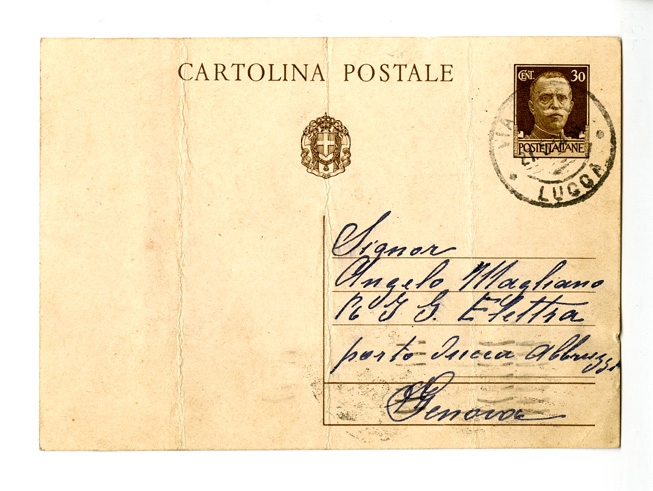 CARTOLINA POSTALE
CENT. 30
POSTE ITALIANE
VIA
LUCCA
Signor
Angelo Magliano
G. Elettra
porto Ducca Abbruzzi
Genova